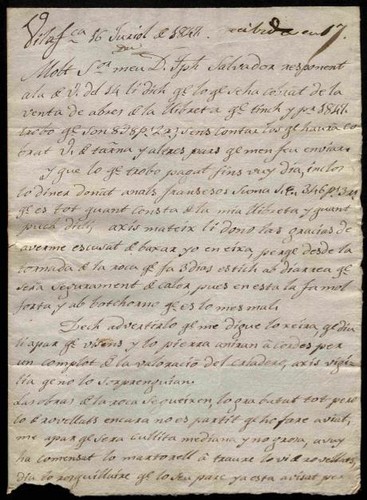 Vilafca 16 Juriol d 1841. recibida en 17.
Molt Sor meu Dn Jph Salvador responent
a la d V. del 14 li dich qe lo qe se ha cobrat de la
venta de abres de la llibreta qe tinch y per 1841
trobo qe son 838 p. sens contar los qe haura co
brat V. de y altres pars qe men feu enviar
y que lo qe trobo pagat fins vuy dia, inclos
lo diner donat an als fransesos suma 346 p.
qe es tot quant consta de la mia llibreta y quant
puch dirli, axis mateix li dono las gracias de
averme escusat de baxar yo en eixa, perqe desde la
tornada de la roca qe fa 3 dias estich ab diarrea qe
sera segurament de calor, pues en esta la fa mol
forta y ab botchorno qe es lo mes mal.
Dech advertirlo qe me digue lo xeira, qe dia
li apar qe vische, y lo pierra aniran acordes per
un complot de la valoracio del criadero, axis vigi
lia qe no lo sorprenguian.
Las obras de la roca segueixen, lo gra batut tot pero
lo rovellats encara no es partit qe ho fare aviat,
me apar qe sera cullita mediana y no grosa, avuy
ha comensat lo martorell a traure lo vi rovellats,
dia de lo seu pare ya esta avisat per